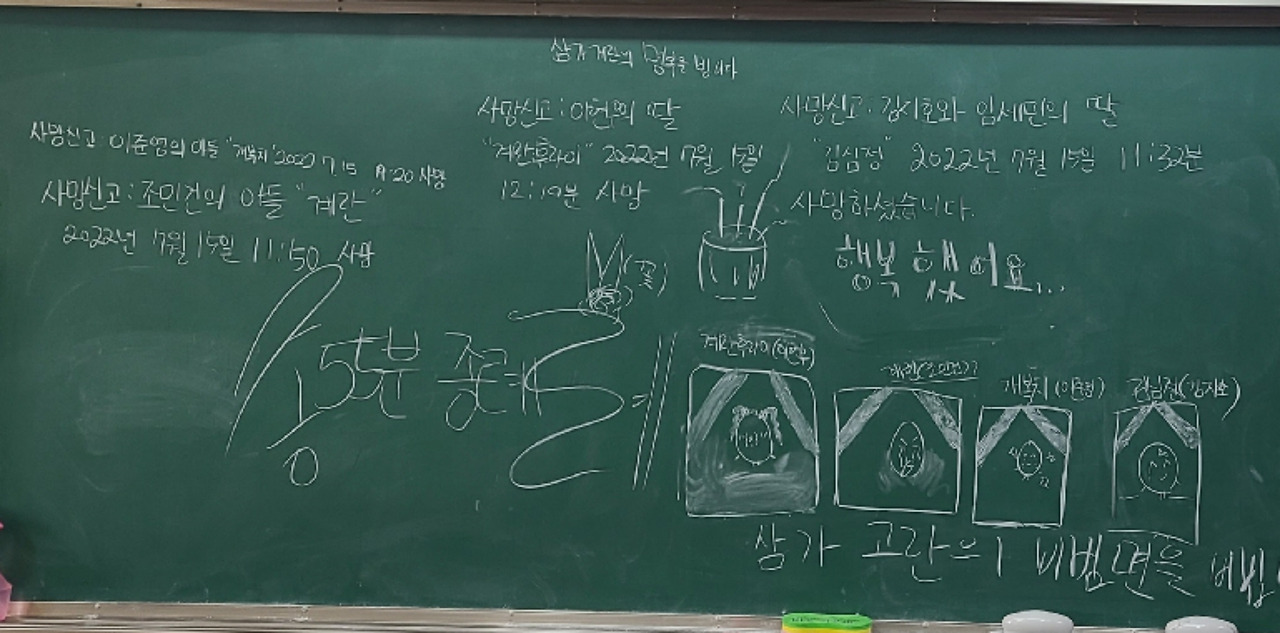 삼가 계란의 명복을 빕니다
사망신고: 이준영의 아들 "개복치" 2022 7.15 사망
사망신고: 조민건의 아들 "계란"
2022년 7월 15일 11:50 사망
사망신고: 이현의 딸
"계란후라이" 2022년 7월 15일
12:10분 사망
사망신고: 김시호와 임세민의 딸
"김심정" 2022년 7월 15일 11:32분
사망하셨습니다.
행복했어요...
(꽃)
55분 종례
계란후라이
개복치
삼가 고란의 비빔면을 비빔